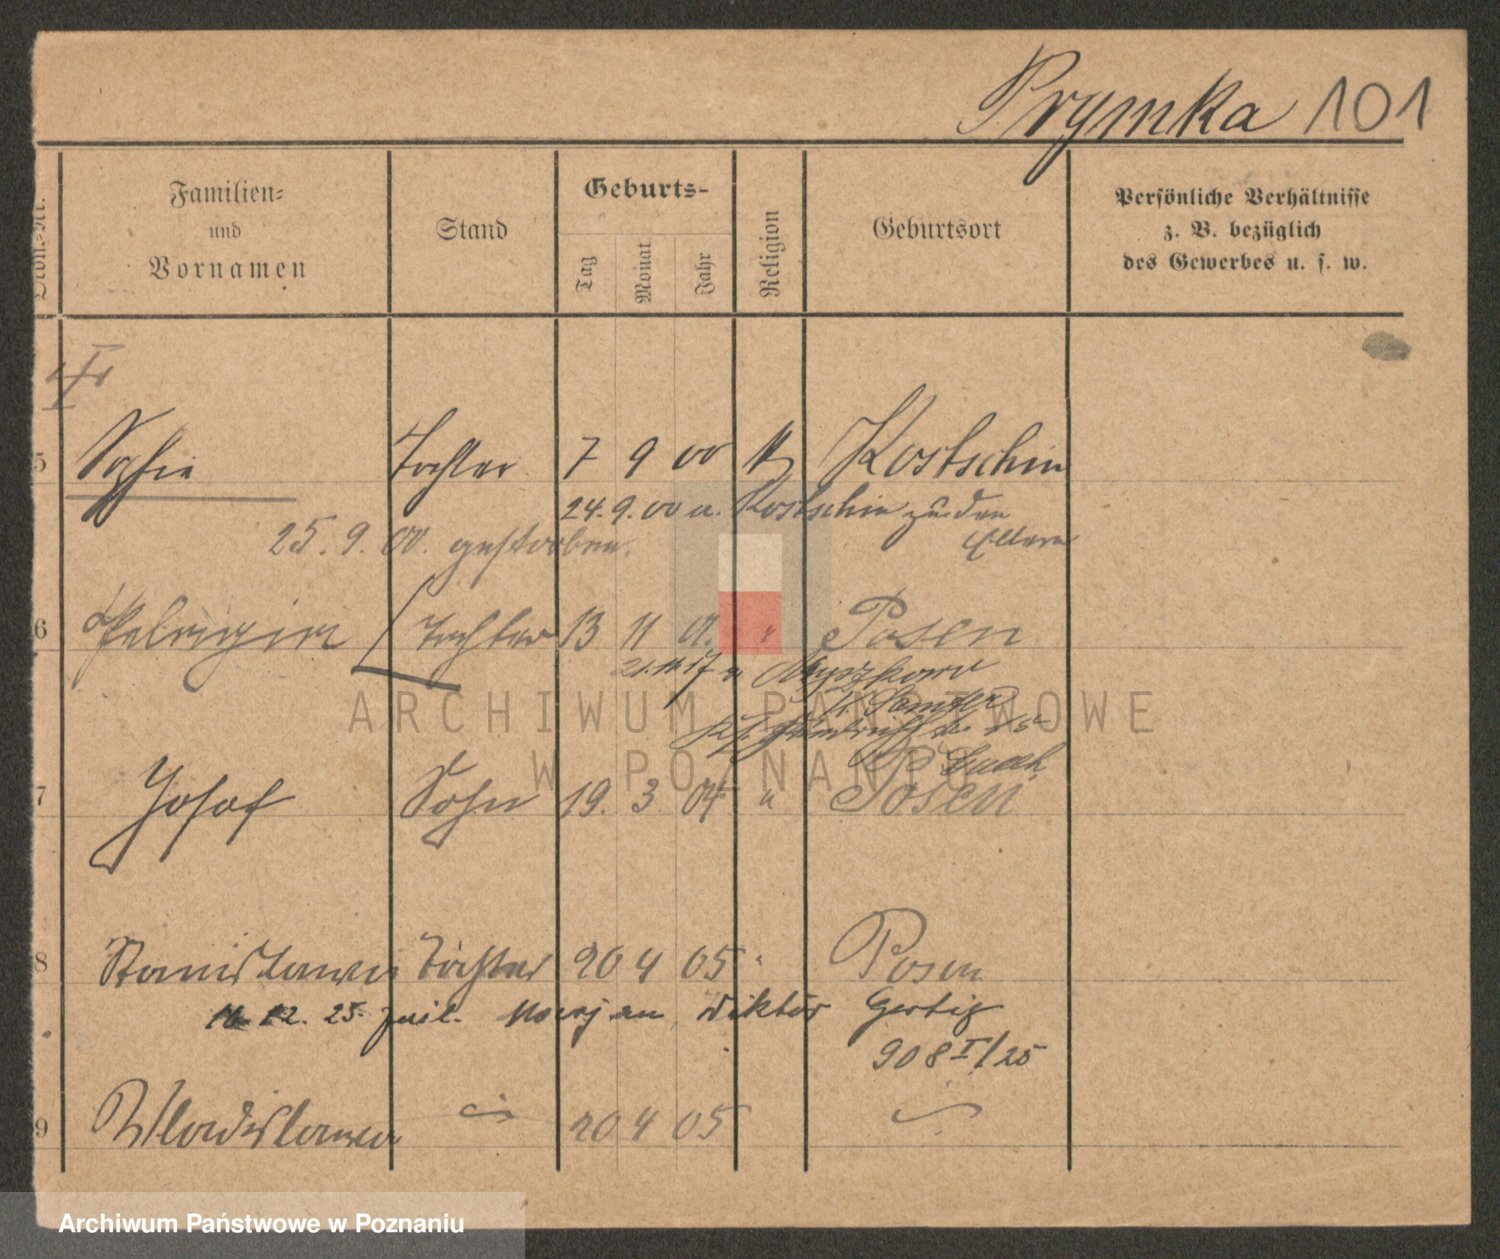 Prymka 101
Familien-
und
Vornamen
Stand
Geburts-
Tag
Monat
Jahr
Religion
Geburtsort
Persönliche Verhältnisse
z. B. bezüglich
des Gewerbes u. s. w.
5 Sofie Tochter 7 9 00 k Kostschin
24. 9. 00 a. Kostschin zu den
Eltern
25. 9. 00. gestorben.
6 Pelagia Tochter 13 11 01. " Posen
21. 11 17 n
ARCHIWUM PAŃSTWOWE
W POZNANIU
7 Josef Sohn 19. 3. 04 " Posen
8 Stanislawa Tochter 20 4 05 " Posen
12. 25. Wiktor Gertig
908 I/25
9 Wladislawa 20 4 05
Archiwum Państwowe w Poznaniu